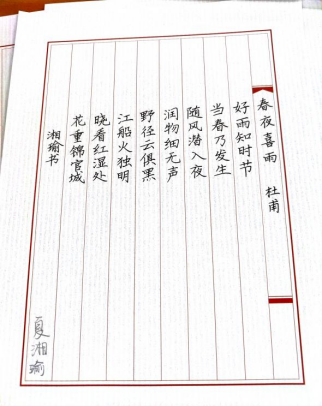 春夜喜雨 杜甫
好雨知时节
当春乃发生
随风潜入夜
润物细无声
野径云俱黑
江船火独明
晓看红湿处
花重锦官城
湘瑜书
夏湘瑜